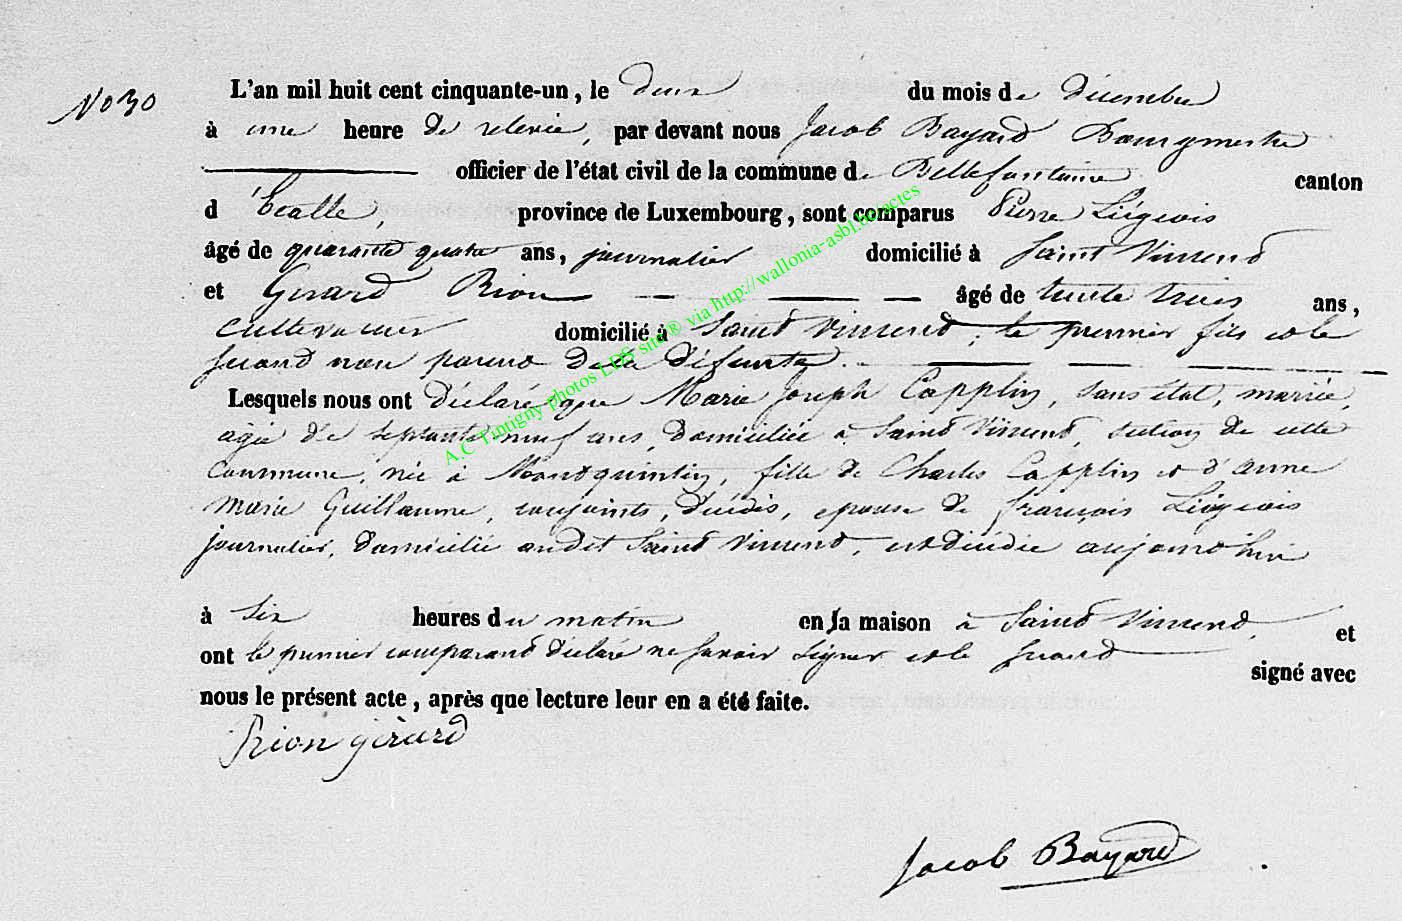 No 30
L'an mil huit cent cinquante-un, le deux du mois de décembre
à une heure de relevée, par devant nous Jacob Bayard Bourgmestre
officier de l'état civil de la commune de Bellefontaine canton
d'Etalle, province de Luxembourg, sont comparus Pierre Liégeois
âgé de quarante quatre ans, journalier domicilié à Saint Vincent
et Gérard Rion âgé de trente trois ans,
cultivateur domicilié à Saint Vincent, le premier fils et le
second non parent de la défunte.
Lesquels nous ont déclaré que Marie Joseph Capplin, sans état, mariée,
agée de septante neuf ans, domiciliée à Saint Vincent, section de cette
commune, née à Montquintin, fille de Charles Capplin et d'anne
marie Guillaume, conjoints, décédés, epouse de françois Liégeois
journalier, domicilié audit Saint Vincent, est décédée aujourd'hui
à six heures du matin en sa maison à Saint Vincent, et
ont le premier comparant déclaré ne savoir signer et le second signé avec
nous le présent acte, après que lecture leur en a été faite.
Rion gérard
Jacob Bayard
A.C Tintigny photos LDS site® via http://wallonia-asbl.be/actes